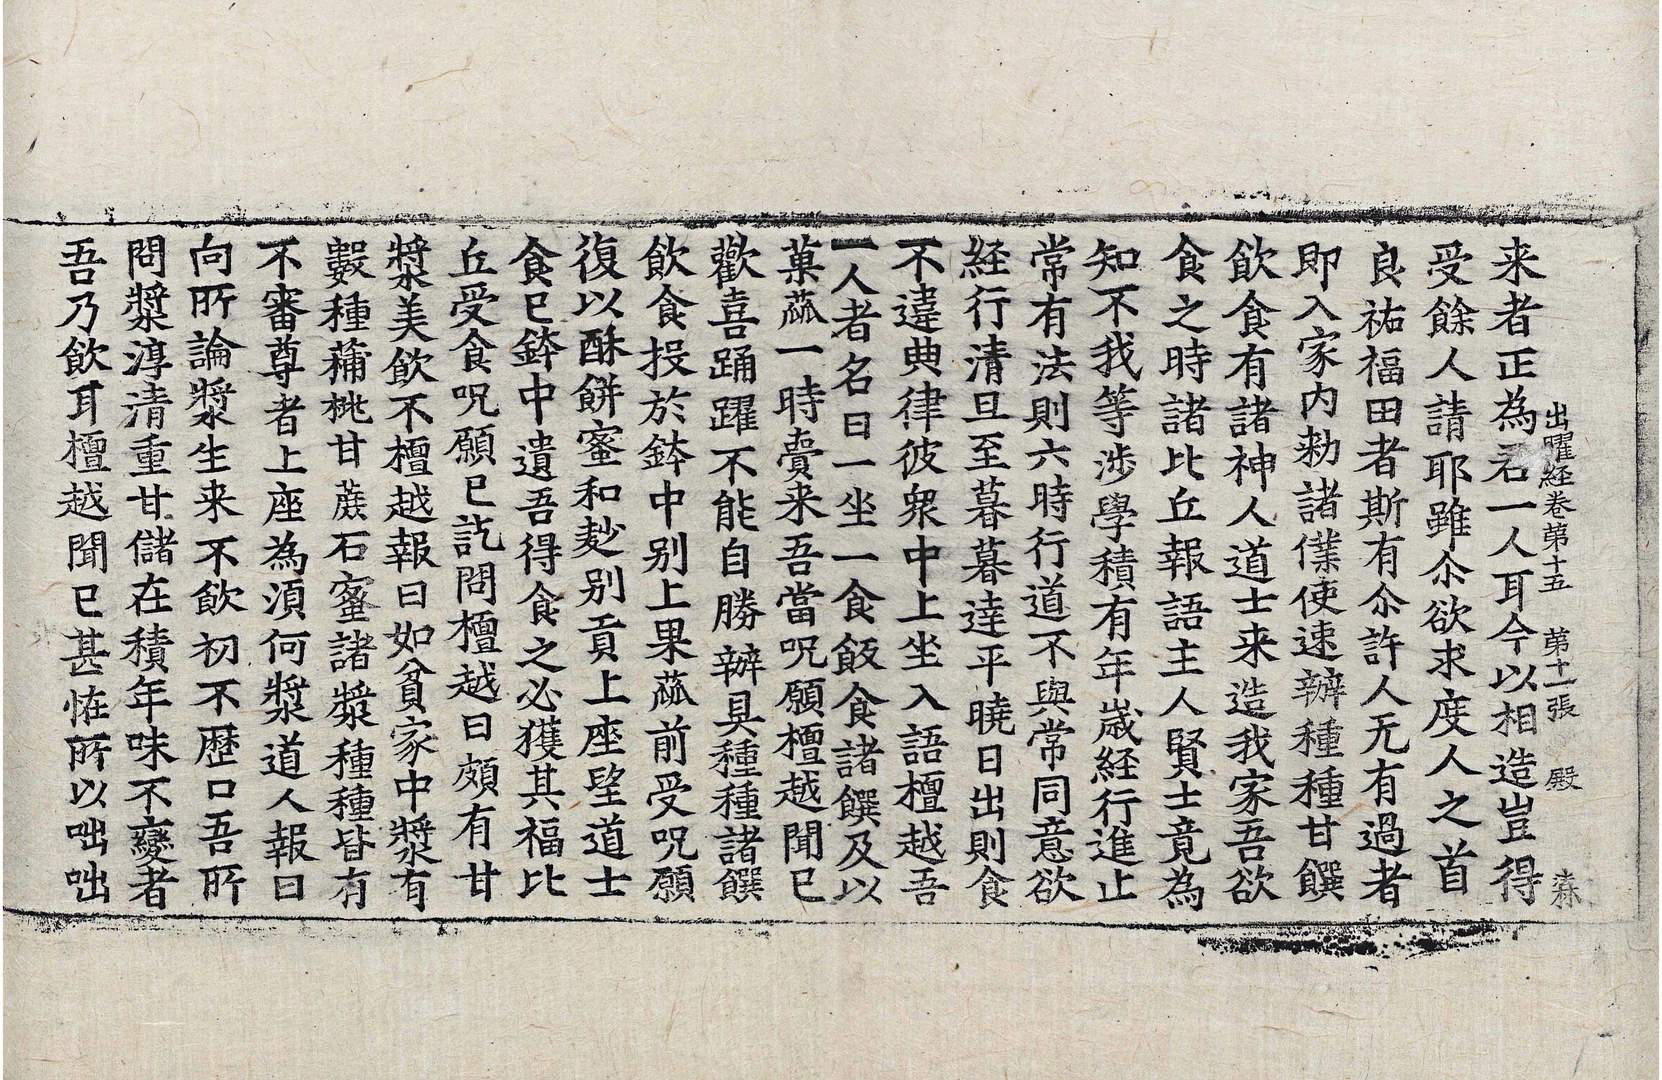 出曜経卷第十五 第十一張 殿 森
来者正為君一人耳今以相造豈得
受餘人請耶雖尒欲求度人之首
良祐福田者斯有尒許人无有過者
即入家内勑諸僕使速辦種種甘饌
飲食有諸神人道士来造我家吾欲
食之時諸比丘報語主人賢士竟為
知不我等涉學積有年嵗経行進止
常有法則六時行道不與常同意欲
経行清旦至暮暮達平曉日出則食
不違典律彼衆中上坐入語檀越吾
一人者名曰一坐一食飯食諸饌及以
菓蓏一時賷来吾當呪願檀越聞已
歡喜踊躍不能自勝辦具種種諸饌
飲食投於鉢中别上果蓏前受呪願
復以酥餅蜜和麨别貢上座𦣠道士
食已鉢中遺吾得食之必獲其福比
丘受食呪願已訖問檀越曰頗有甘
漿美飲不檀越報曰如貧家中漿有
數種蒱桃甘蔗石蜜諸漿種種皆有
不審尊者上座為湏何漿道人報曰
向所論漿生来不飲初不歴口吾所
問漿淳清重甘儲在積年味不變者
吾乃飲耳檀越聞已甚恠所以咄咄